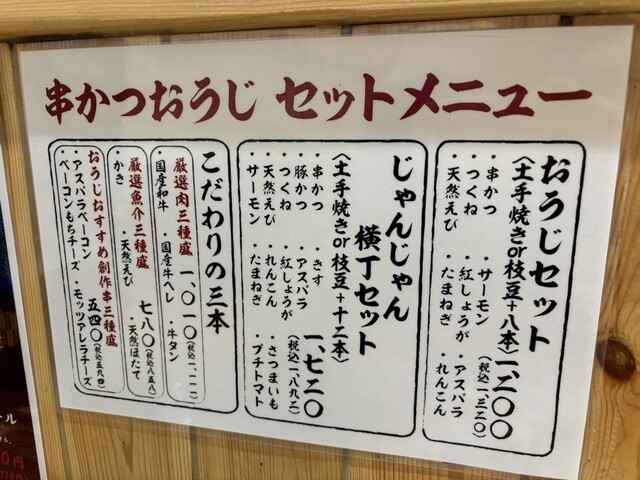 串かつおうじ セットメニュー
おうじセット
〈土手焼きor枝豆+八本〉一、二〇〇
(税込一、三二〇)
・串かつ ・サーモン ・アスパラ
・つくね ・紅しょうが ・れんこん
・天然えび ・たまねぎ
じゃんじゃん
横丁セット
〈土手焼きor枝豆+十二本〉
一、七二〇
(税込一、八九二)
・串かつ ・きす ・さつまいも
・豚かつ ・アスパラ ・プチトマト
・つくね ・紅しょうが
・天然えび ・れんこん
・サーモン ・たまねぎ
こだわりの三本
厳選肉三種盛 一、〇一〇(税込一、一一一)
・国産和牛 ・国産牛ヘレ ・牛タン
厳選魚介三種盛 七八〇(税込八五八)
・かき ・天然えび ・天然ほたて
おうじおすすめ創作串三種盛
五四〇(税込五九四)
・アスパラベーコン
・ベーコンもちチーズ ・モッツアレラチーズ
円